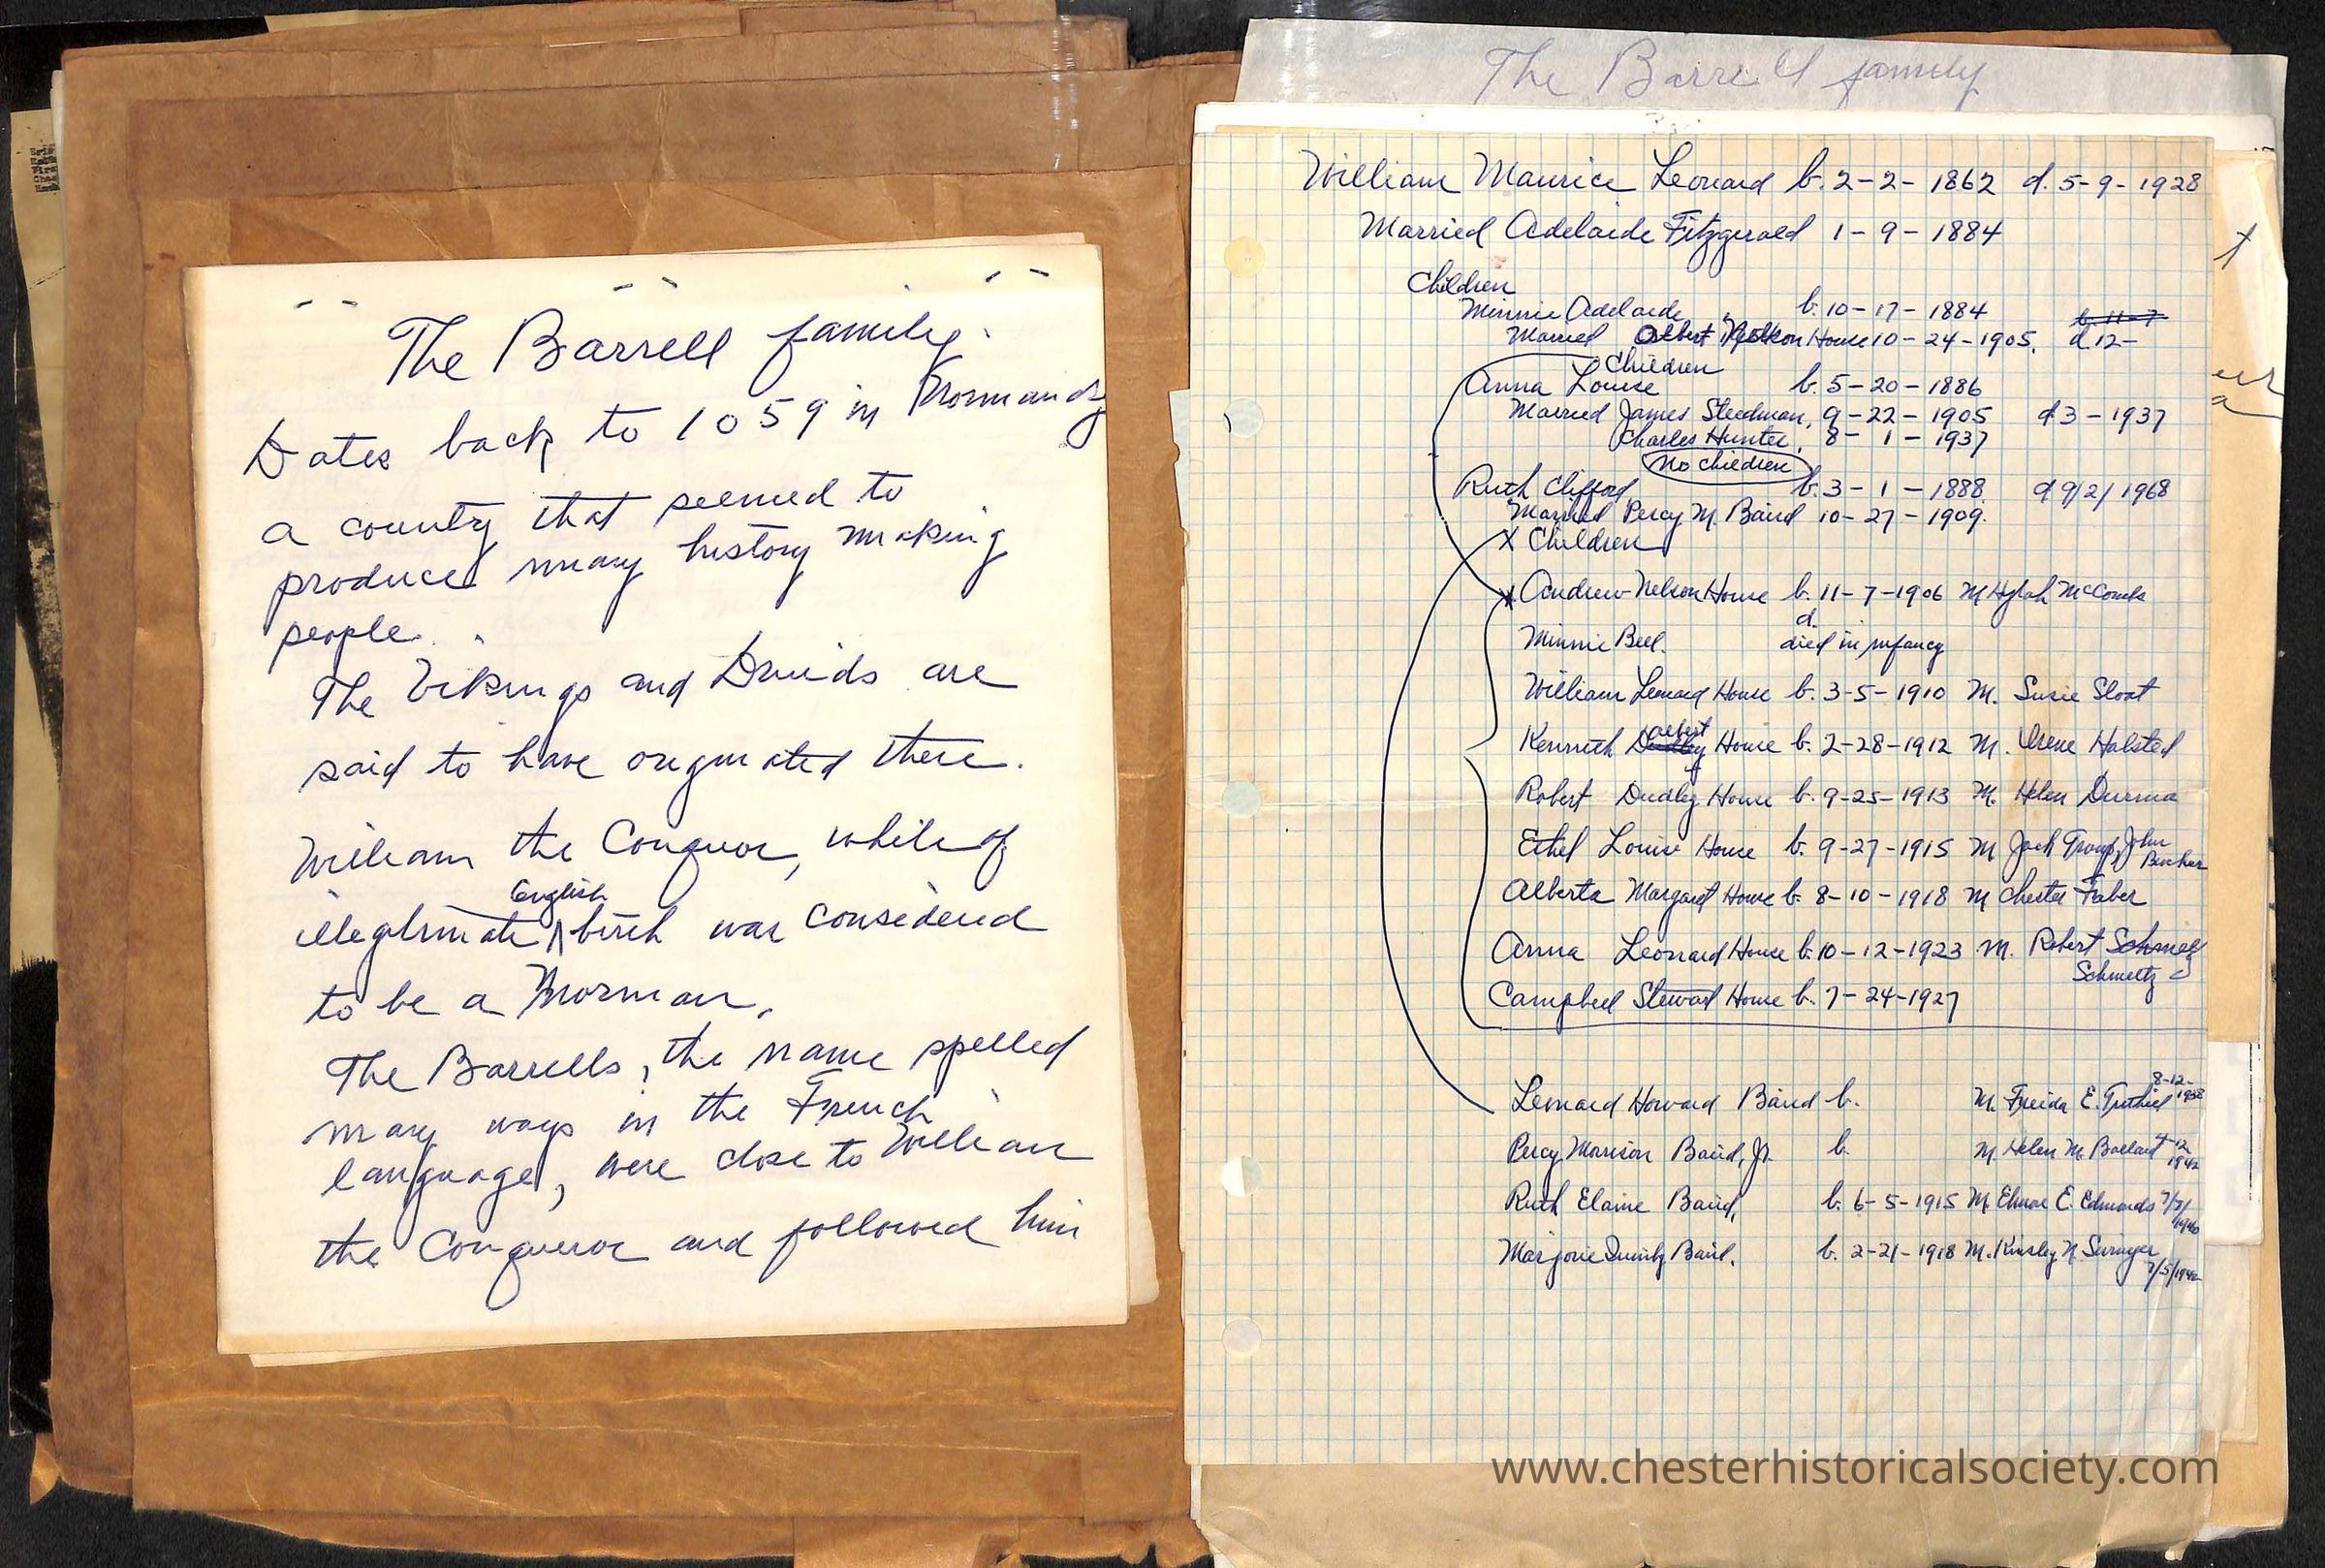 The Barrell family
Dates back to 1059 in Normandy
a county that seemed to
produce many history making
people.
The Vikings and Druids are
said to have originated there.
William the Conquor, while of
English
illegitimate ^ birth was considered
to be a Norman.
The Barrells, the name spelled
many ways in the French
language, were close to William
the Conqueror and followed him
The Barrell family
William Maurice Leonard b. 2-2-1862 d. 5-9-1928
Married Adelaide Fitzgerald 1-9-1884
Children
Minnie Adelaide, b. 10-17-1884 b. 11-7
Married Albert Nelson House 10-24-1905, d. 12-
Children
Anna Louise b. 5-20-1886
Married James Steedman, 9-22-1905 d 3-1937
Charles Hunter, 8-1-1937
No children
Ruth Clifford, b. 3-1-1888 d 9/2/1968
Married Percy M. Baird 10-27-1909.
X Children
Andrew Nelson House b. 11-7-1906 M Hylah McCombs
d.
Minnie Bell. died in infancy
William Leonard House b. 3-5-1910 M. Susie Sloat
Albert
Kenneth Dudley House b. 2-28-1912 M. Irene Halsted
Robert Dudley House b. 9-25-1913 M. Helen Durma
Ethel Louise House b. 9-27-1915 M Jack John
Alberta Margaret House b. 8-10-1918 M Chester Faber
Anna Leonard House b. 10-12-1923 M. Robert
Schmeltz
Campbell Stewart House b. 7-24-1927
8-12-
Leonard Howard Baird b. M. Freida E. Tuthill
Percy Morrison Baird, Jr. b. M Helen M. Ballard 4-12
1942
Ruth Elaine Baird, b. 6-5-1915 M. Elmer E. Edmunds
Marjorie Quimby Baird. b. 2-21-1918 M. Kinsley N.
www.chesterhistoricalsociety.com